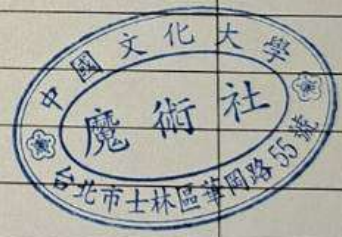 中國文化大學
魔術社
台北市士林區華岡路55號